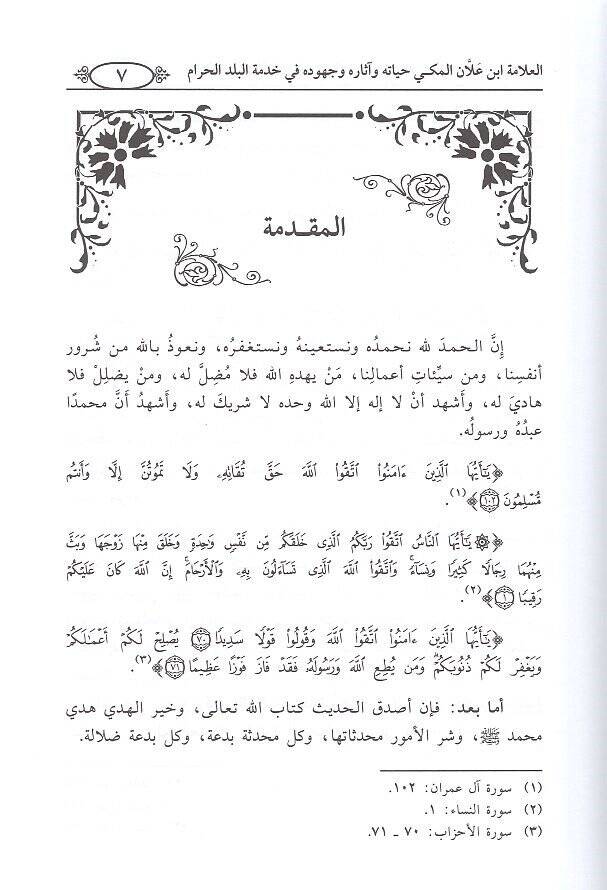 العلامة ابن عَلَّان المكـي حياته وآثاره وجهوده في خدمة البلد الحرام
٧
المقـدمة
إنَّ الحمدَ لله نحمدُه ونستعينهُ ونستغفرُه، ونعوذُ بالله من شُرور
أنفسِنا، ومن سيِّئاتِ أعمالِنا، مَنْ يهدهِ الله فلا مُضِلَّ له، ومنْ يضلِلْ فلا
هاديَ له، وأشهد أنْ لا إله إلا الله وحده لا شريكَ له، وأشهدُ أنَّ محمدًا
عبدُهُ ورسولُه.
﴿يَٰٓأَيُّهَا ٱلَّذِينَ ءَامَنُوا۟ ٱتَّقُوا۟ ٱللَّهَ حَقَّ تُقَاتِهِۦ وَلَا تَمُوتُنَّ إِلَّا وَأَنتُم
مُّسْلِمُونَ ١٠٢﴾(١).
﴿۞ يَٰٓأَيُّهَا ٱلنَّاسُ ٱتَّقُوا۟ رَبَّكُمُ ٱلَّذِى خَلَقَكُم مِّن نَّفْسٍ وَٰحِدَةٍ وَخَلَقَ مِنْهَا زَوْجَهَا وَبَثَّ
مِنْهُمَا رِجَالًا كَثِيرًا وَنِسَآءً ۚ وَٱتَّقُوا۟ ٱللَّهَ ٱلَّذِى تَسَآءَلُونَ بِهِۦ وَٱلْأَرْحَامَ ۚ إِنَّ ٱللَّهَ كَانَ عَلَيْكُمْ
رَقِيبًا ١﴾(٢).
﴿يَٰٓأَيُّهَا ٱلَّذِينَ ءَامَنُوا۟ ٱتَّقُوا۟ ٱللَّهَ وَقُولُوا۟ قَوْلًا سَدِيدًا ٧٠ يُصْلِحْ لَكُمْ أَعْمَٰلَكُمْ
وَيَغْفِرْ لَكُمْ ذُنُوبَكُمْ ۗ وَمَن يُطِعِ ٱللَّهَ وَرَسُولَهُۥ فَقَدْ فَازَ فَوْزًا عَظِيمًا ٧١﴾(٣).
أما بعد: فإن أصدق الحديث كتاب الله تعالى، وخير الهدي هدي
محمد ﷺ، وشر الأمور محدثاتها، وكل محدثة بدعة، وكل بدعة ضلالة.
(١) سورة آل عمران: ١٠٢.
(٢) سورة النساء: ١.
(٣) سورة الأحزاب: ٧٠ ـ ٧١.